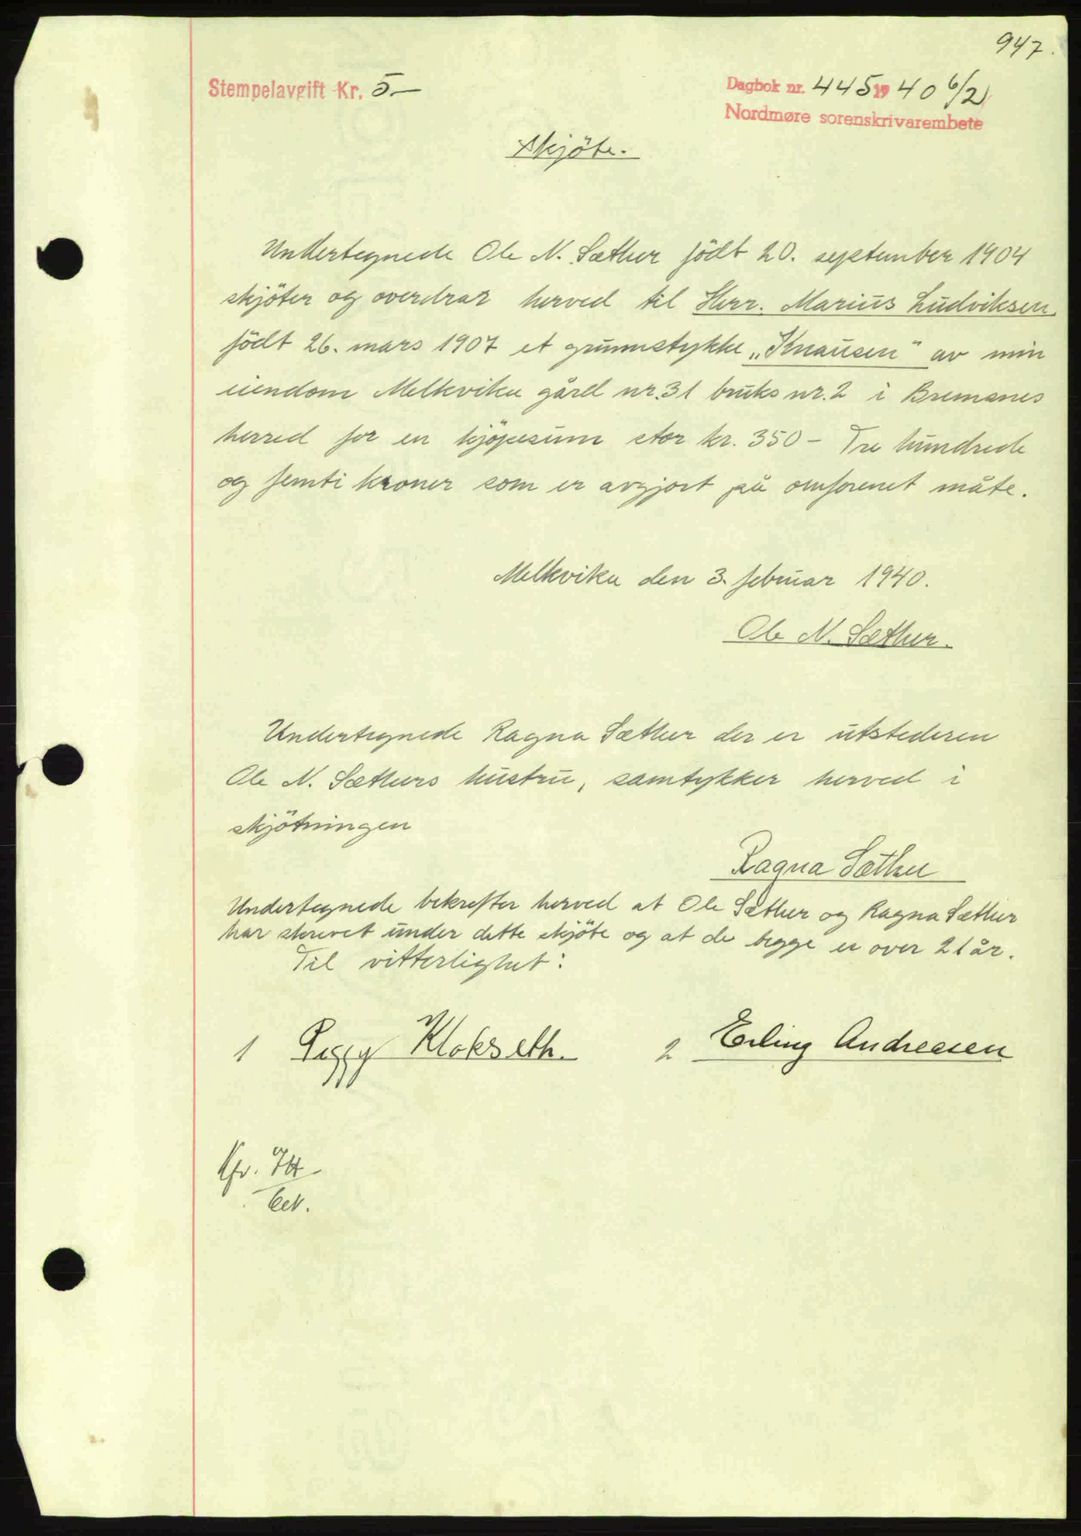 947.
Stempelavgift Kr. 5.-
Dagbok nr. 445 1940 6/2
Nordmøre sorenskrivarembete
Skjöte.
Undertegnede Ole N. Sæther född 20. september 1904
skjöter og overdrar herved til Herr. Marius Ludviksen
född 26. mars 1907 et grunnstykke „Knausen" av min
eiendom Melkvika gård nr. 31 bruks nr. 2 i Bremsnes
herred for en kjöpesum stor kr. 350 - Tre hundrede
og femti kroner som er avgjort på omforenet måte.
Melkvika den 3. februar 1940.
Ole N. Sæther.
Undertegnede Ragna Sæther der er utstederen
Ole N. Sæthers hustru, samtykker herved i
skjötningen
Ragna Sæther
Undertegnede bekrefter herved at Ole Sæther og Ragna Sæther
har skrevet under dette skjöte og at de begge er over 21 år.
Til vitterlighet:
1 Peggy Klokseth. 2 Erling Andreesen